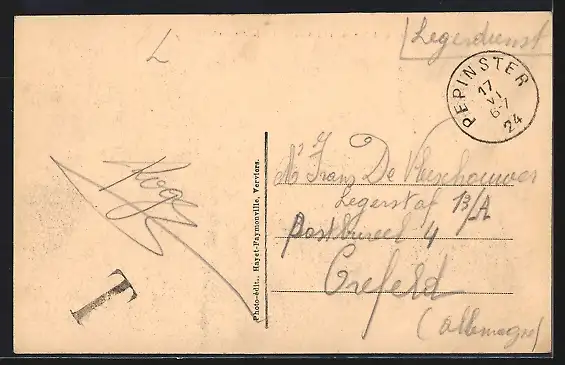 L
Legerdienst
PEPINSTER
17
VI
6-7
24
Mr Frans De Vleeschouwer
Legerstaf 13/A
Postbureel 4
Crefeld
(Allemagne)
Roger
Photo-édit., Hayet-Faymonville, Verviers.
T